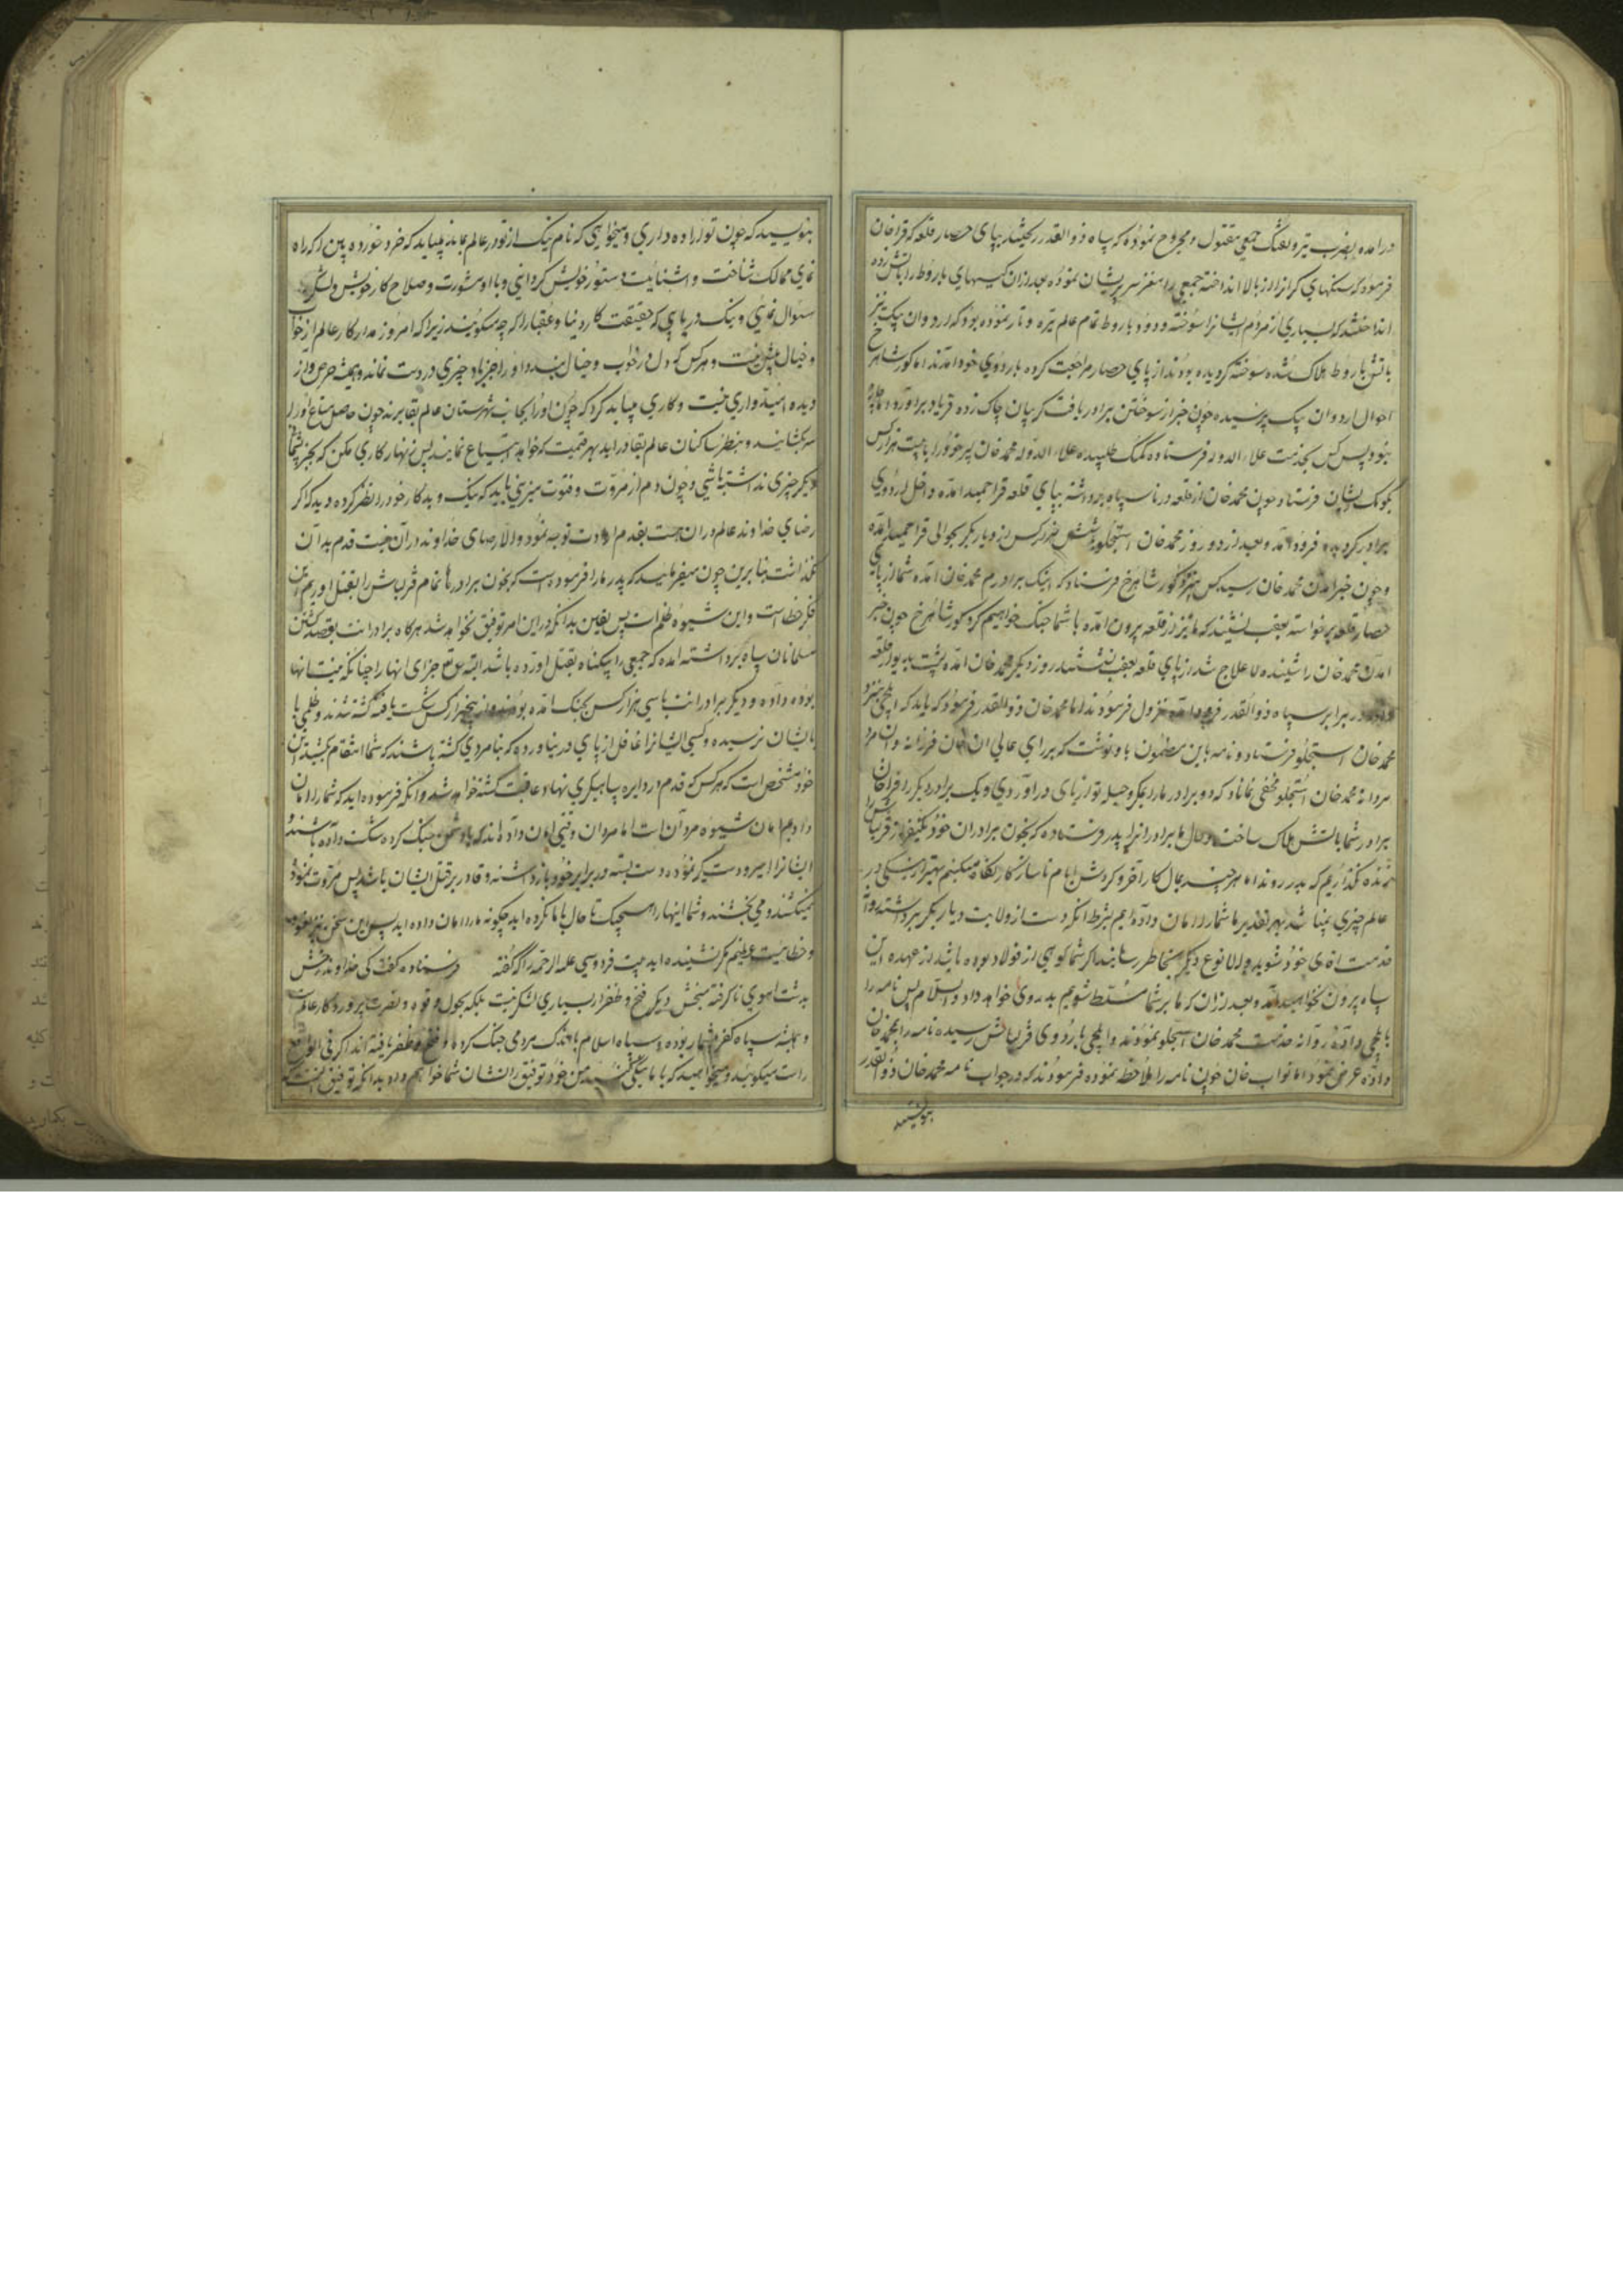 درآمده بضرب تیر و تفنگ جمعی مقتول و مجروح نموده که سپاه ذوالقدر بپای حصار قلعه که قراخان
فرمود که سنکهای کران از بالا انداخته جمعی را مغز سر پریشان نموده بعد از آن کیسهای باروط را باتش زده
انداختند که بسیاری از مردم ایشانرا سوخته و دود باروط تمام عالم تیره و تار نموده بود که اردوان بیک نیز
باتش باروط هلاک شده سوخته کردیده بودند از پای حصار مراجعت کرده باردوی خود آمدند اما کور شاهرخ
احوال اردوان بیک پرسیده چون خبر از سوختن برادر یافت کریبان چاک زده فریاد برآورد
کس بخدمت علاء الدوله فرستاده کمک طلبیده علاء الدوله محمد خان پسر خود را با بیست هزار کس
بکومک ایشان فرستاد و چون محمد خان از قلعه درنا سپاه برداشته بپای قلعه قراحمید آمده داخل اردوی
برادر کردیده فرود آمد و بعد از دو روز محمد خان استجلو با شش هزار کس از دیار بکر بحوالی قراحمید آمده
و چون خبر آمدن محمد خان رسید کس بنزد کور شاهرخ فرستاد که اینک برادرم محمد خان آمده شما از پای
حصار قلعه برخواسته بعقب نشینید که ما نیز از قلعه بیرون آمده با شما جنک خواهیم کرد کور شاهرخ چون خبر
آمدن محمد خان را شنیده لاعلاج شد از پای قلعه بعقب نشستند روز دیکر محمد خان آمده پشت بدیوار قلعه
در برابر سپاه ذوالقدر فرود آمده نزول فرمودند اما محمد خان ذوالقدر فرمود که باید که ایلچی بنزد
محمد خان استجلو فرستاد و نامه باین مضمون باو نوشت که برای عالی آن خان فرزانه و آن مرد
مردانه محمد خان استجلو مخفی نماناد که دو برادر ما را بمکر و حیله تو از پای درآوردی و یک برادر دیکر را قراخان
برادر شما باتش هلاک ساخت و حال ما برادرانرا پدر فرستاده که بخون برادران خود یکنفر از قزلباش را
زنده نکذاریم که بدر روند اما هر چند بمآل کار آخر و کردش ایام ناسازکار نکاه میکنیم بهتر از نیکی در
عالم چیزی نمیباشد بهر تقدیر ما شما را امان داده‌ایم بشرط آنکه دست از ولایت دیار بکر برداشته روانه
خدمت آقای خود شوید والا نوع دیکر بخاطر رسانید اکر شما کوهی از فولاد بوده باشید از عهده این
سپاه بیرون نخواهید آمد و بعد از آن که ما بر شما مسلط شویم بد روی خواهد داد والسلام پس نامه را
بایلچی داده روانه خدمت محمد خان استجلو نمودند و ایلچی باردوی قزلباش رسیده نامه را بمحمد خان
داده عرض نمود اما نواب خان چون نامه را ملاحظه نموده فرمودند که در جواب نامه محمد خان ذوالقدر
بنویسید
بنویسید که چون تو اراده داری و میخواهی که نام نیک از تو در عالم بماند میباید که خرد خورده بین را که راه
نمای ممالک شناخت و آشنائیست دستور خویش کردانی و با او مشورت و صلاح کار خویش و لشکر
سئوال نمائی و نیک دریابی که حقیقت کار دنیا و عقبا را که چه میکویند زیرا که امروز مدار کار عالم از خواب
و خیال بیش نیست و هر کس که دل در خواب و خیال بندد او را جز باد چیزی در دست نماند و همیشه حرص و آز
دیده امیدواری نیست و کاری میباید کرد که چون او را بجانب شهرستان عالم بقا برند چون حاصل متاع او را
سر بکشایند و بنظر ساکنان عالم بقا درآید بهر قیمت که خواهد ابتیاع نمایند پس زنهار کاری مکن که بجز پشیمانی
دیکر چیزی نداشته باشی و چون دم از مروت و فتوت میزنی باید که نیک و بد کار خود را نظر کرده دید که اکر
رضای خداوند عالم در آن هست بقدم ارادت توجه نمود والا رضای خداوند در آن نیست قدم بدان
نکذاشت بنابرین چون میفرمایید که پدر ما را فرموده است که بخون برادرها تمام قزلباش را بقتل آوریم این
فکر خطاست و این شیوه ظلم است پس یقین بدانکه در این امر توفیق نخواهد شد هرکاه برادرانت بقصد کشتن
مسلمانان سپاه برداشته آمده که جمعی را بیکناه بقتل آورده باشد البته حق تعالی جزای آنها را چنانکه نیت آنها
بوده داده و دیکر برادرانت با سی هزار کس بجنک آمده بودند و از پنجهزار کس شکست یافته کشته شدند و ظلمی با
ایشان نرسیده و کسی ایشانرا غافل از پای در نیاورده که بنامردی کشته باشند که شما انتقام کشید این
خود مشخص است که هر کس که قدم در دایره سپاهیکری نهاد عاقبت کشته خواهد شد و آنکه فرموده‌اید که شما را امان
داده‌ایم امان شیوه مردان است اما مردان وقتی امان داده‌اند که با دشمن جنک کرده شکست داده باشند و
ایشانرا اسیر و دستکیر نموده دست بسته در برابر خود بازداشته و قادر بر قتل ایشان باشد پس مروت نموده
نمیکشند و می‌بخشند و شما اینها را هیچیک تا حال با ما نکرده‌اید چکونه ما را امان داده‌اید پس این سخن نیز
و خطائیست عظیم مکر نشنیده‌اید بیت فردوسی علیه الرحمه را که کفته فرستاده کفت کی خداوند رخش
بدشت آهوی ناکرفته مبخش دیکر فتح و ظفر از بسیاری لشکر نیست بلکه بحول و قوه و نصرت پروردکار عالم است
و همیشه سپاه کفر بیشمار بوده و سپاه اسلام باندک مردمی جنک کرده و فتح و ظفر یافته‌اند اکر فی الواقع
راست میکوئید و میخواهید که با ما نیکی کنید من خود توفیق را نشان شما خواهم داد بدانکه توفیق آنست که